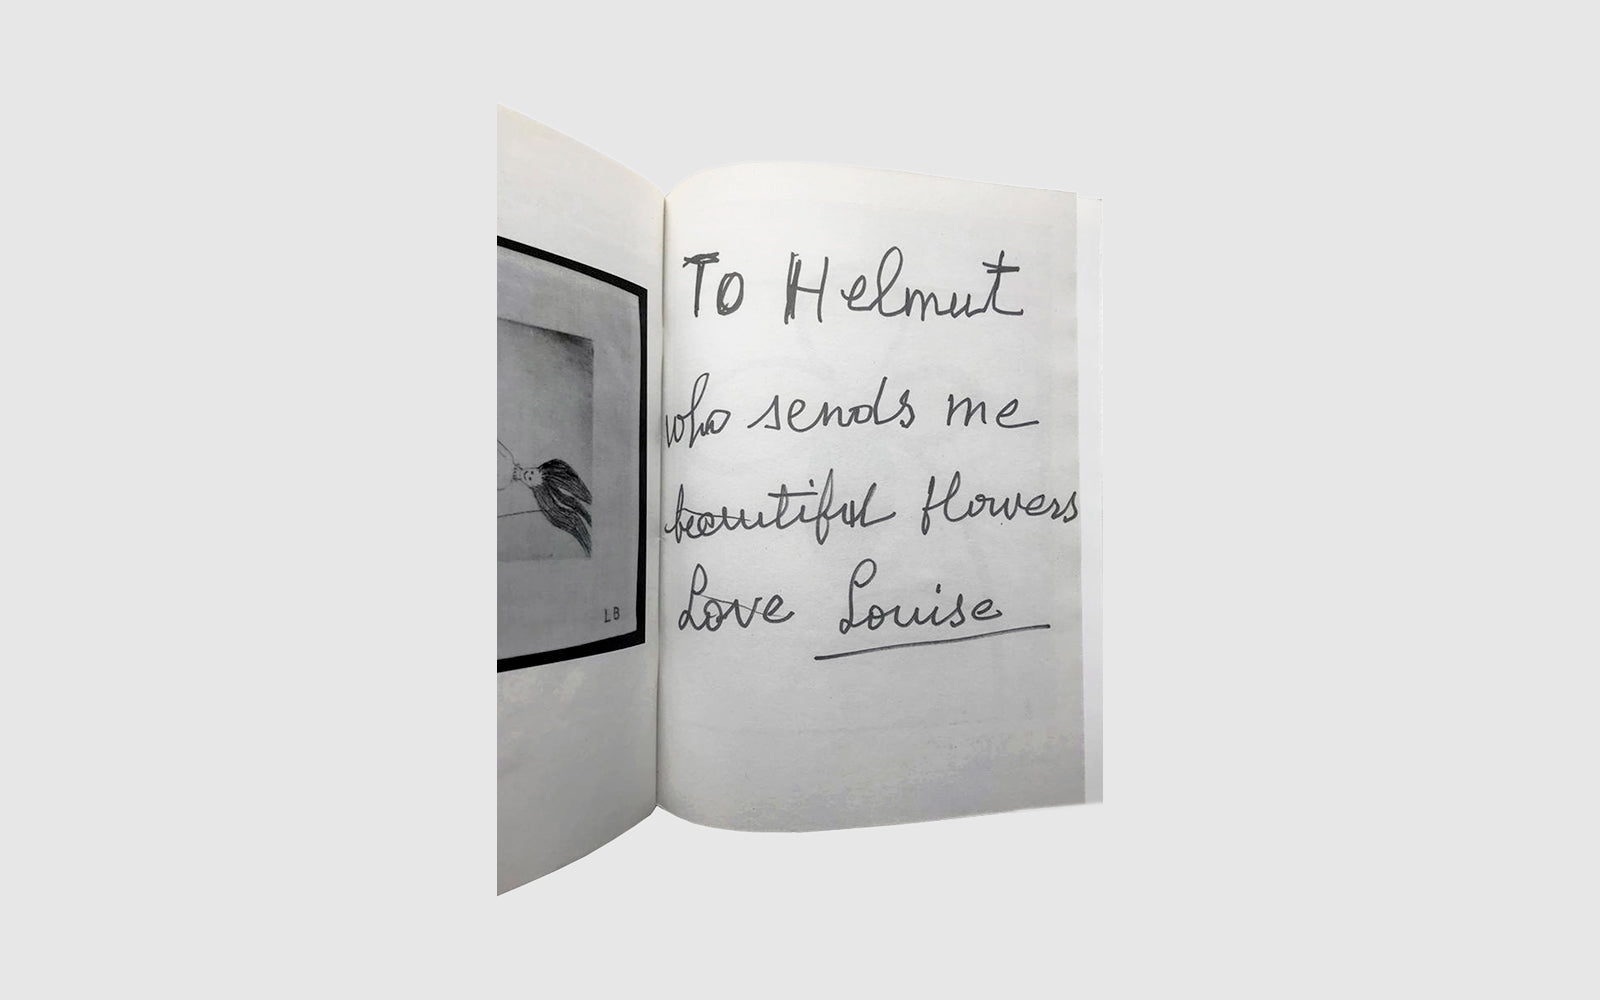 LB
To Helmut
who sends me
beautiful flowers
Love Louise